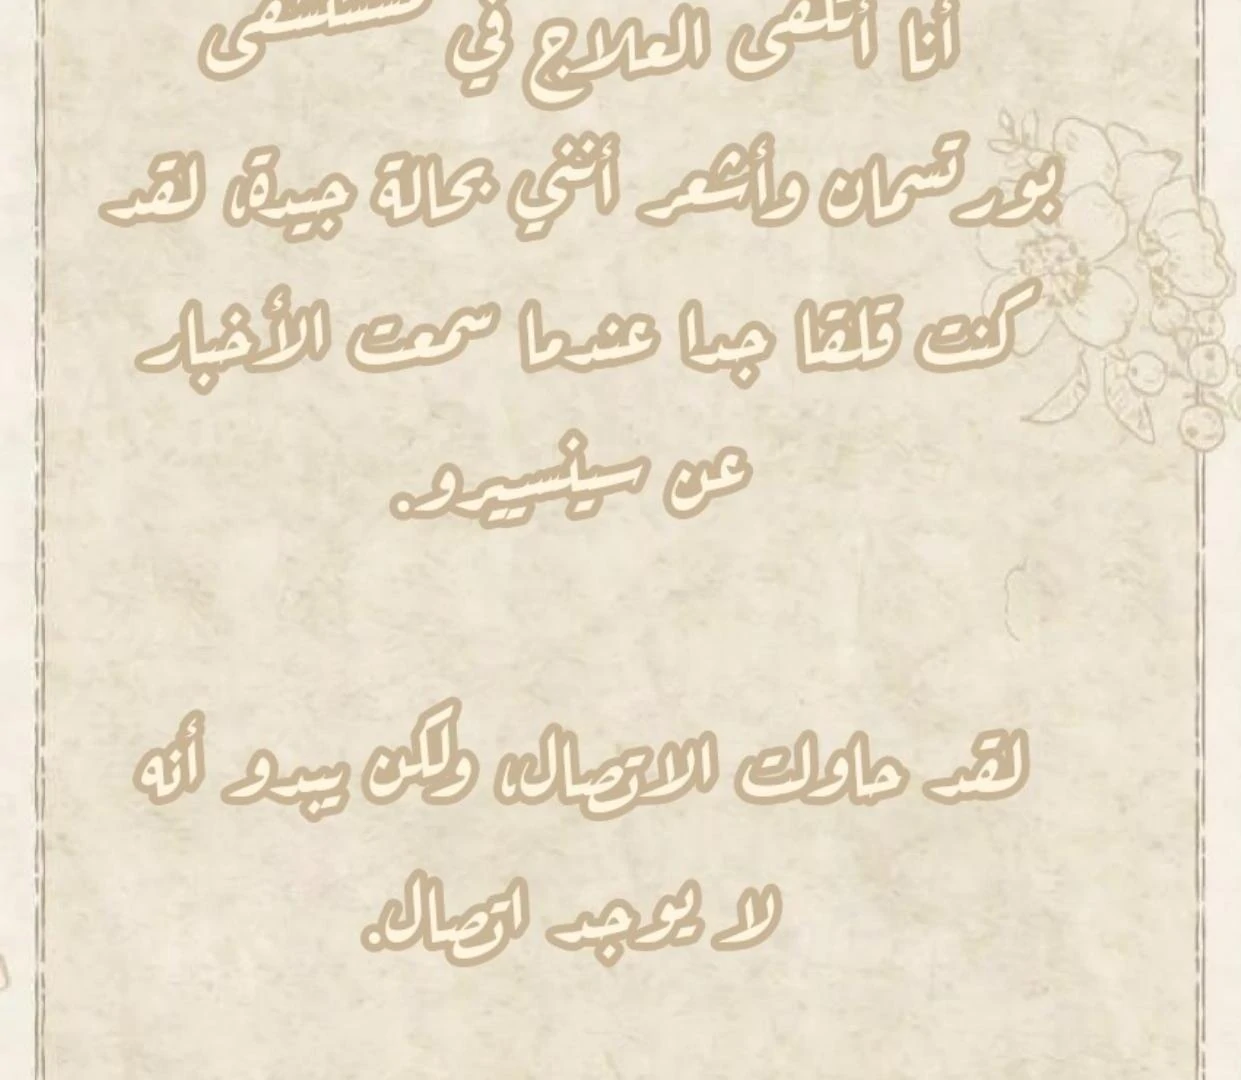 أنا أتلقى العلاج في مستشفى
بورتسمان وأشعر أنني بحالة جيدة، لقد
كنت قلقا جدا عندما سمعت الأخبار
عن سينسيرو.
لقد حاولت الاتصال، ولكن يبدو أنه
لا يوجد اتصال.